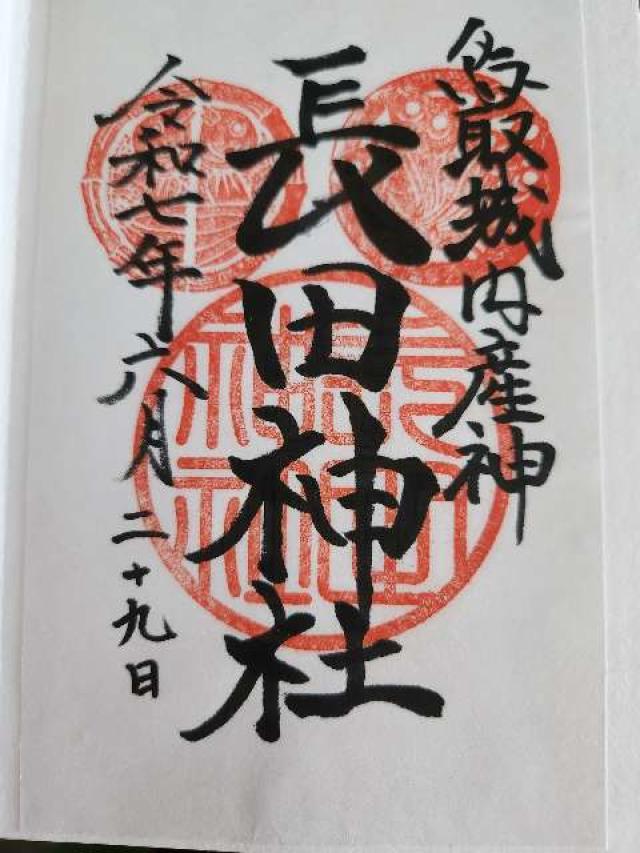 鳥取城内産神
長田神社
令和七年六月二十九日
長田神社